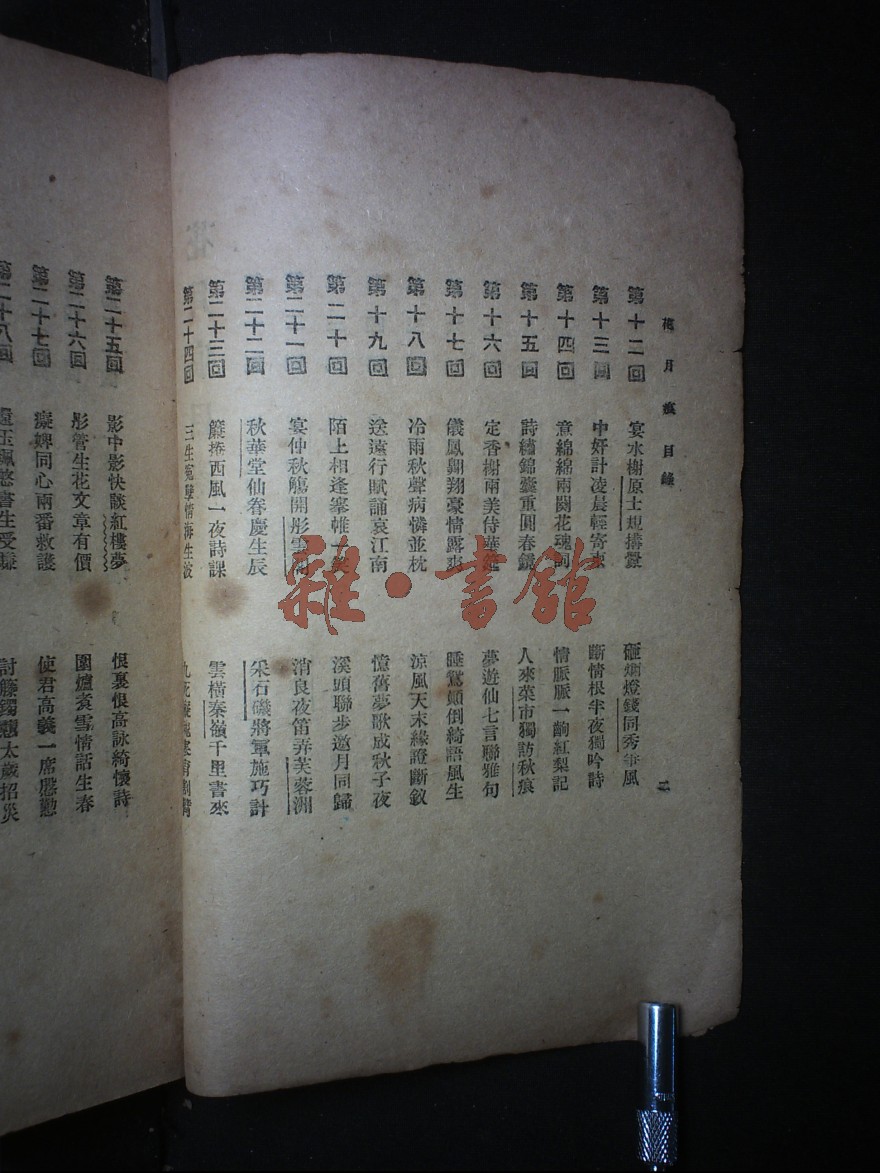 花月痕 目錄 二
第十二回 宴水榭原士規構釁 砸煙燈錢同秀爭風
第十三回 中奸計凌晨輕寄柬 斷情根半夜獨吟詩
第十四回 意綿綿兩闋花魂詞 情脈脈一齣紅梨記
第十五回 詩繡錦囊重圓春鏡 人來菜市獨訪秋痕
第十六回 定香榭兩美侍華筵 夢遊仙七言聯雅句
第十七回 儀鳳翱翔豪情露爽 睡鴛顛倒綺語風生
第十八回 冷雨秋聲病憐並枕 涼風天末緣證斷釵
第十九回 送遠行賦誦哀江南 憶舊夢歌成秋子夜
第二十回 陌上相逢搴帷一笑 溪頭聯步邀月同歸
第二十一回 宴仲秋觴開彤雲閣 消良夜笛弄芙蓉洲
第二十二回 秋華堂仙眷慶生辰 采石磯將軍施巧計
第二十三回 簾捲西風一夜詩課 雲橫秦嶺千里書來
第二十四回 三生冤孽情海生波 九死癡魂寒宵割臂
第二十五回 影中影快談紅樓夢 恨裏恨高詠綺懷詩
第二十六回 彤管生花文章有價 圍爐煮雪情話生春
第二十七回 癡婢同心兩番救護 使君高義一席慇懃
第二十八回 還玉佩憨書生受賺 討籐鐲戇太歲招災
雜·書館